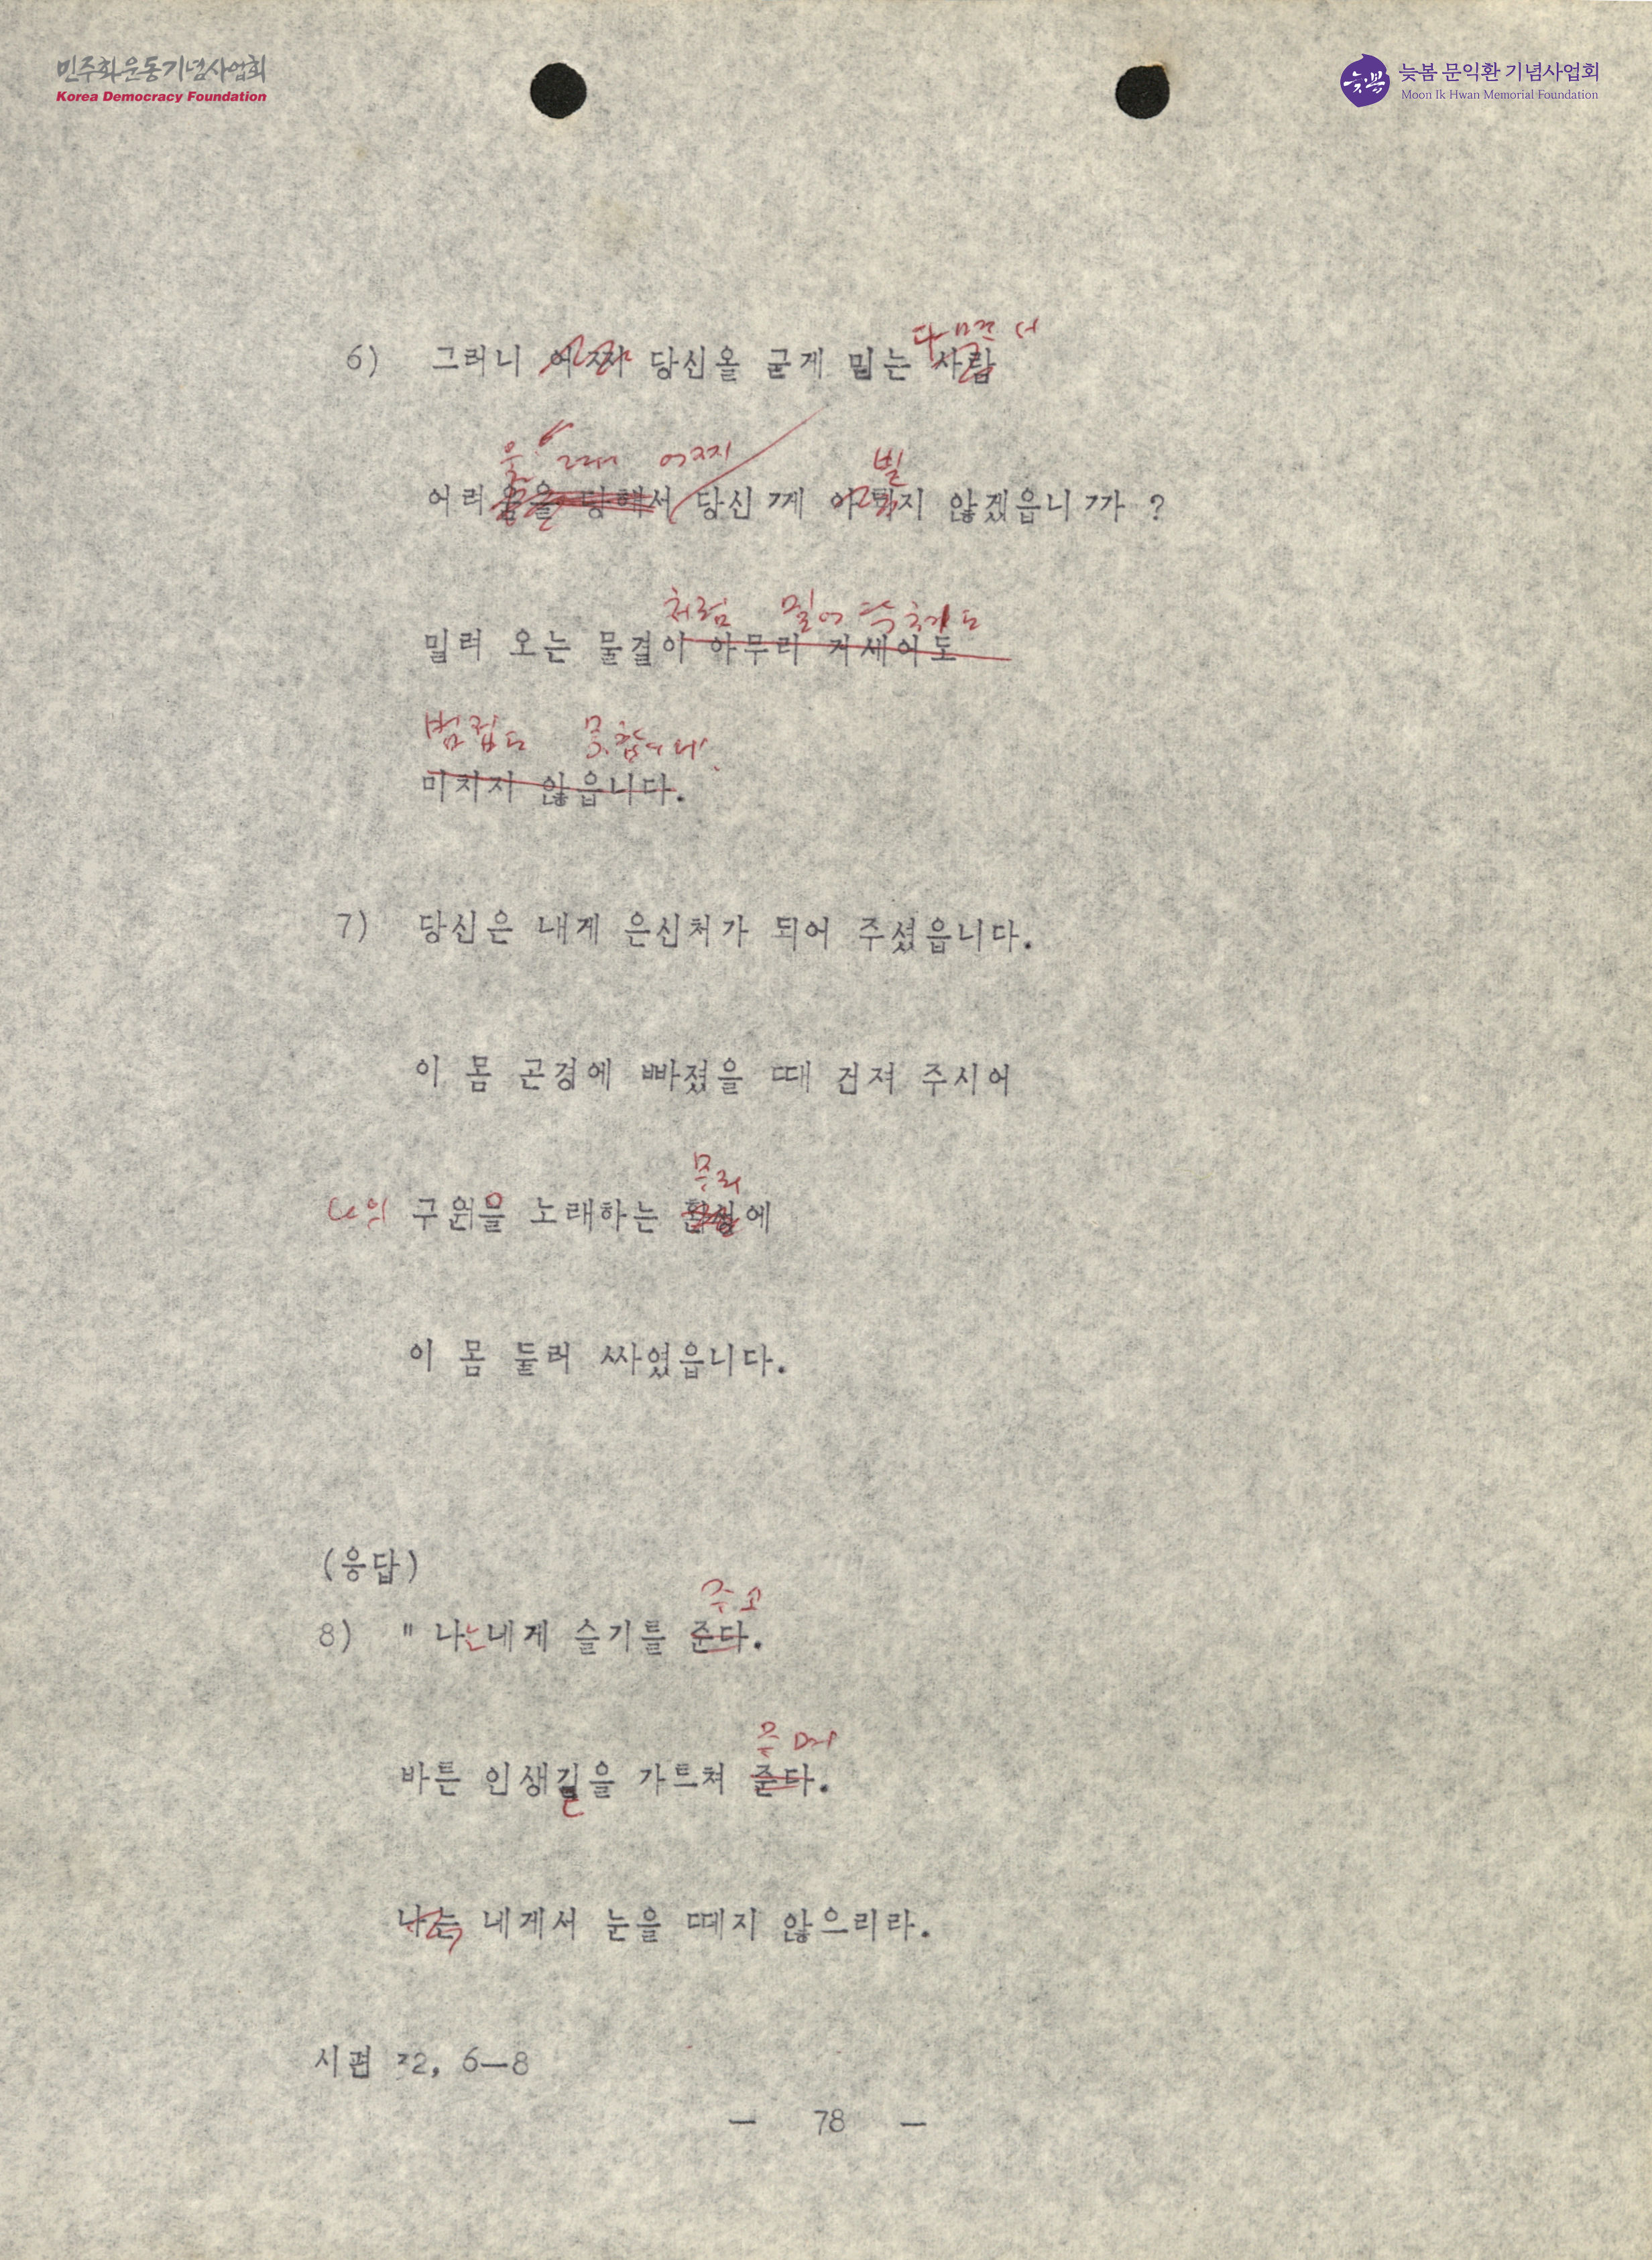 민주화운동기념사업회
Korea Democracy Foundation
늦봄 늦봄 문익환 기념사업회
Moon Ik Hwan Memorial Foundation
6) 그러니 어찌 당신을 굳게 믿는 사람
어찌
빌
어려움을 당해서 당신께 아뢰지 않겠읍니까 ?
처럼 밀어닥쳐도
밀려 오는 물결이 아무리 거세어도
범접도 못합니다.
미치지 않읍니다.
7) 당신은 내게 은신처가 되어 주셨읍니다.
이 몸 곤경에 빠졌을 때 건져 주시어
무리
나의 구원을 노래하는 함성에
이 몸 둘러 싸였읍니다.
(응답)
주고
8) " 나는 네게 슬기를 준다.
주며
바른 인생길을 가르쳐 준다.
나는 네게서 눈을 떼지 않으리라.
시편 32, 6—8
— 78 —